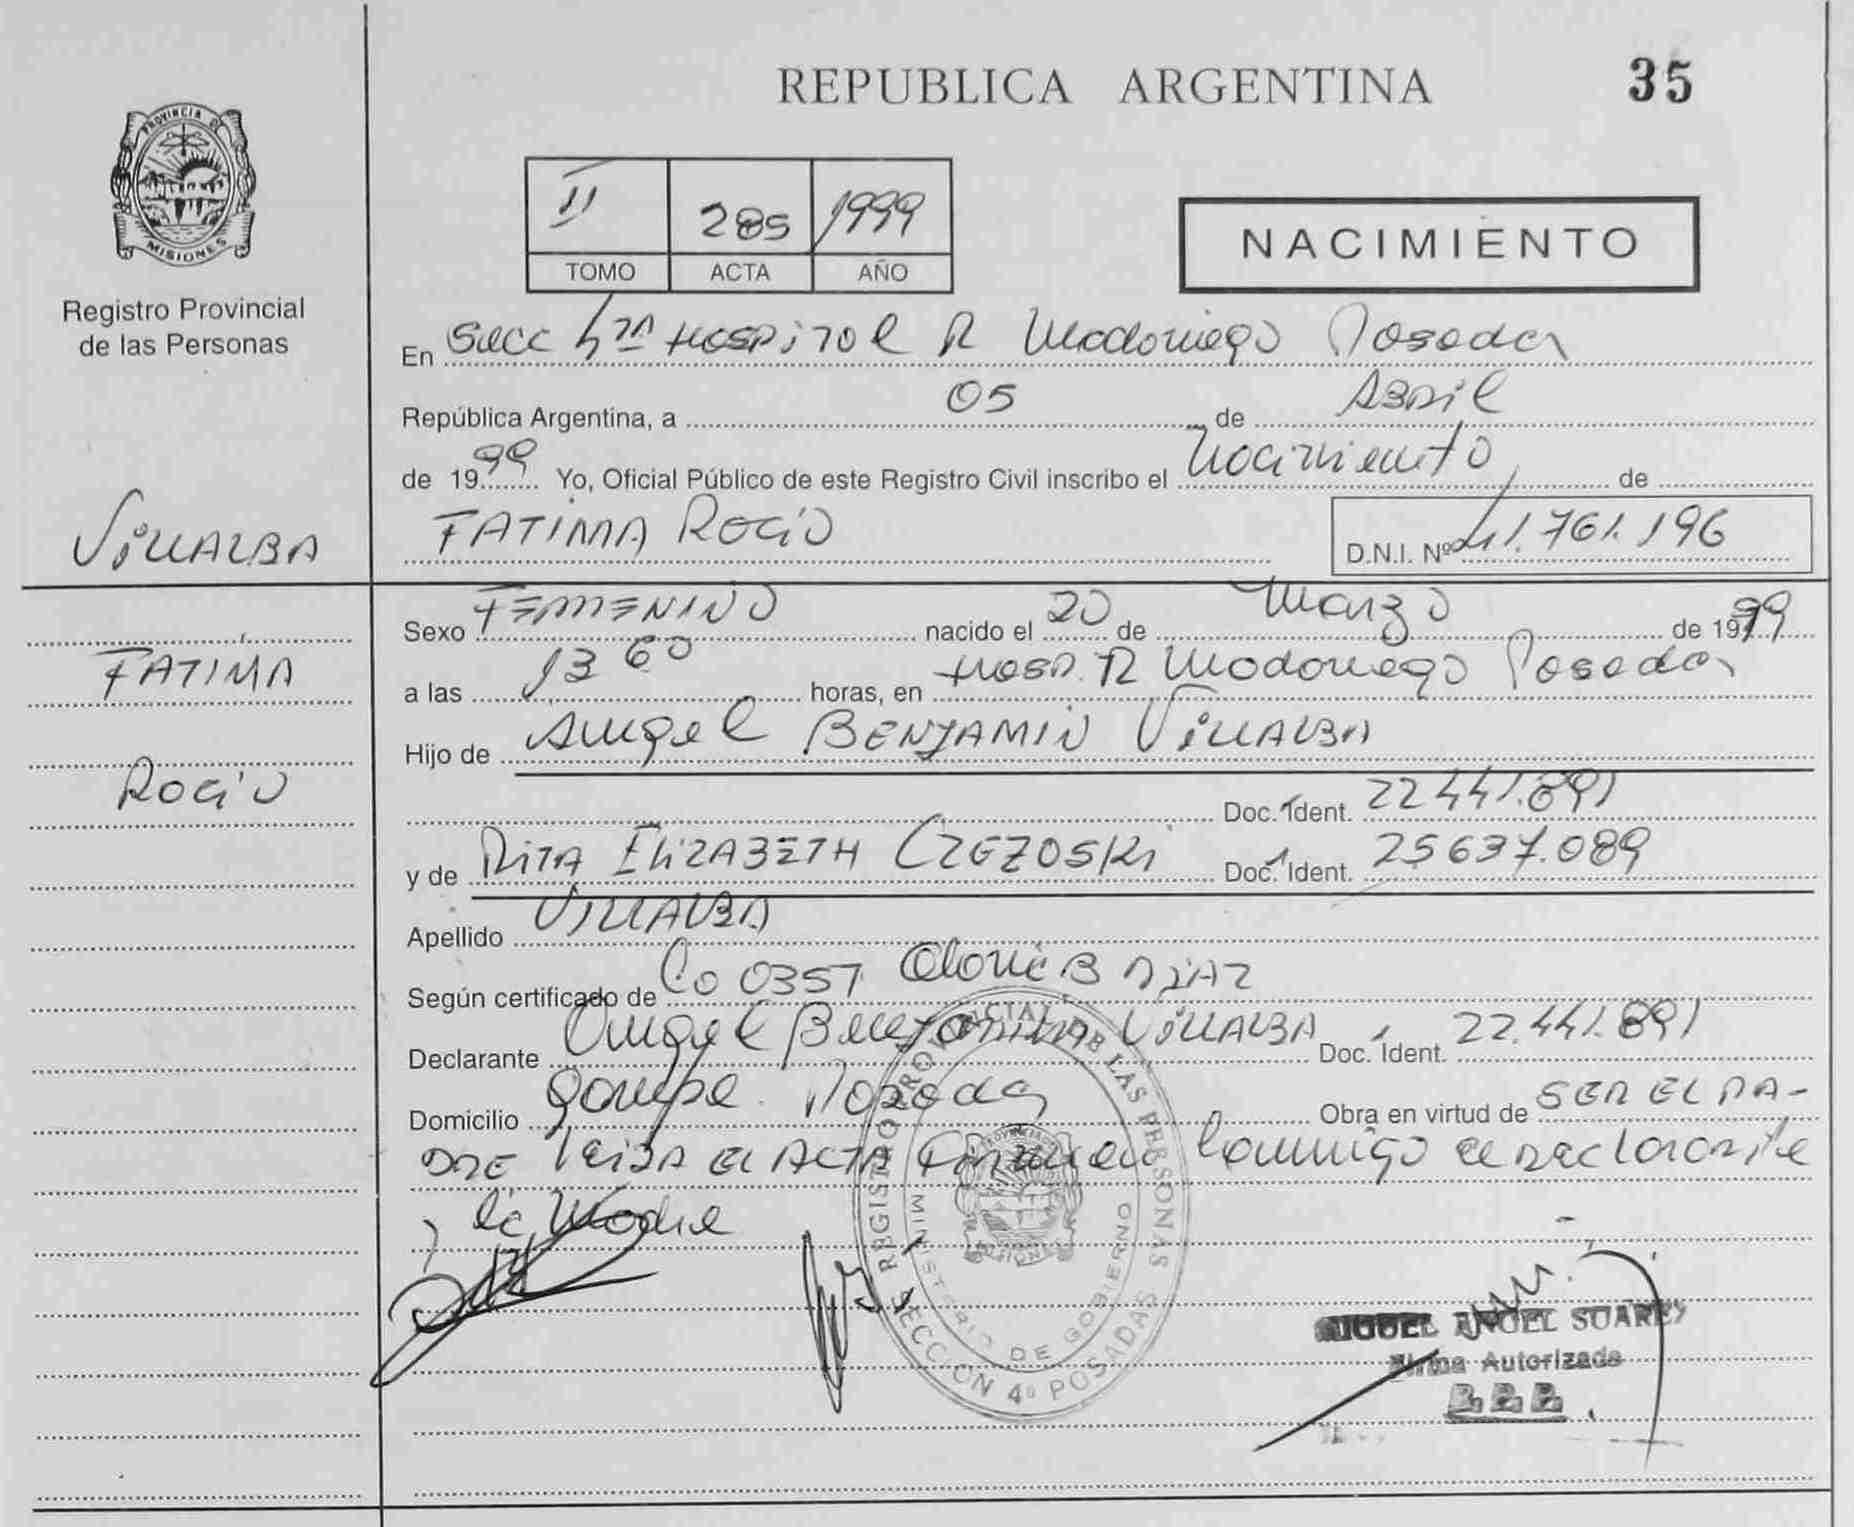 REPUBLICA ARGENTINA
35
PROVINCIA DE
MISIONES
Registro Provincial
de las Personas
II 285 1999
TOMO ACTA AÑO
NACIMIENTO
En Secc 4ta Hospital R Madariaga Posadas
República Argentina, a 05 de Abril
de 1999 Yo, Oficial Público de este Registro Civil inscribo el Nacimiento de
VILLALBA
FATIMA ROCIO
D.N.I. Nº 41.761.196
Sexo FEMENINO nacido el 20 de Marzo de 1999
FATIMA
a las 13 horas, en Hosp. R Madariaga Posadas
Hijo de Angel BENJAMIN VILLALBA
ROCIO
Doc. Ident. 22.441.891
y de RITA ELIZABETH CZEZOSKI Doc. Ident. 25637.089
Apellido VILLALBA
Según certificado de Co 0357 B DIAZ
Declarante Angel Benjamin VILLALBA Doc. Ident. 22.441.891
Domicilio Garupa. Posadas Obra en virtud de SER EL PA-
DRE Leida el ACTA Firman Conmigo el declarante
y la Madre
REGISTRO PROVINCIAL DE LAS PERSONAS
MINISTERIO DE GOBIERNO
SECCION 4º POSADAS
MIGUEL ANGEL SUAREZ
Firma Autorizada
R. P. P.